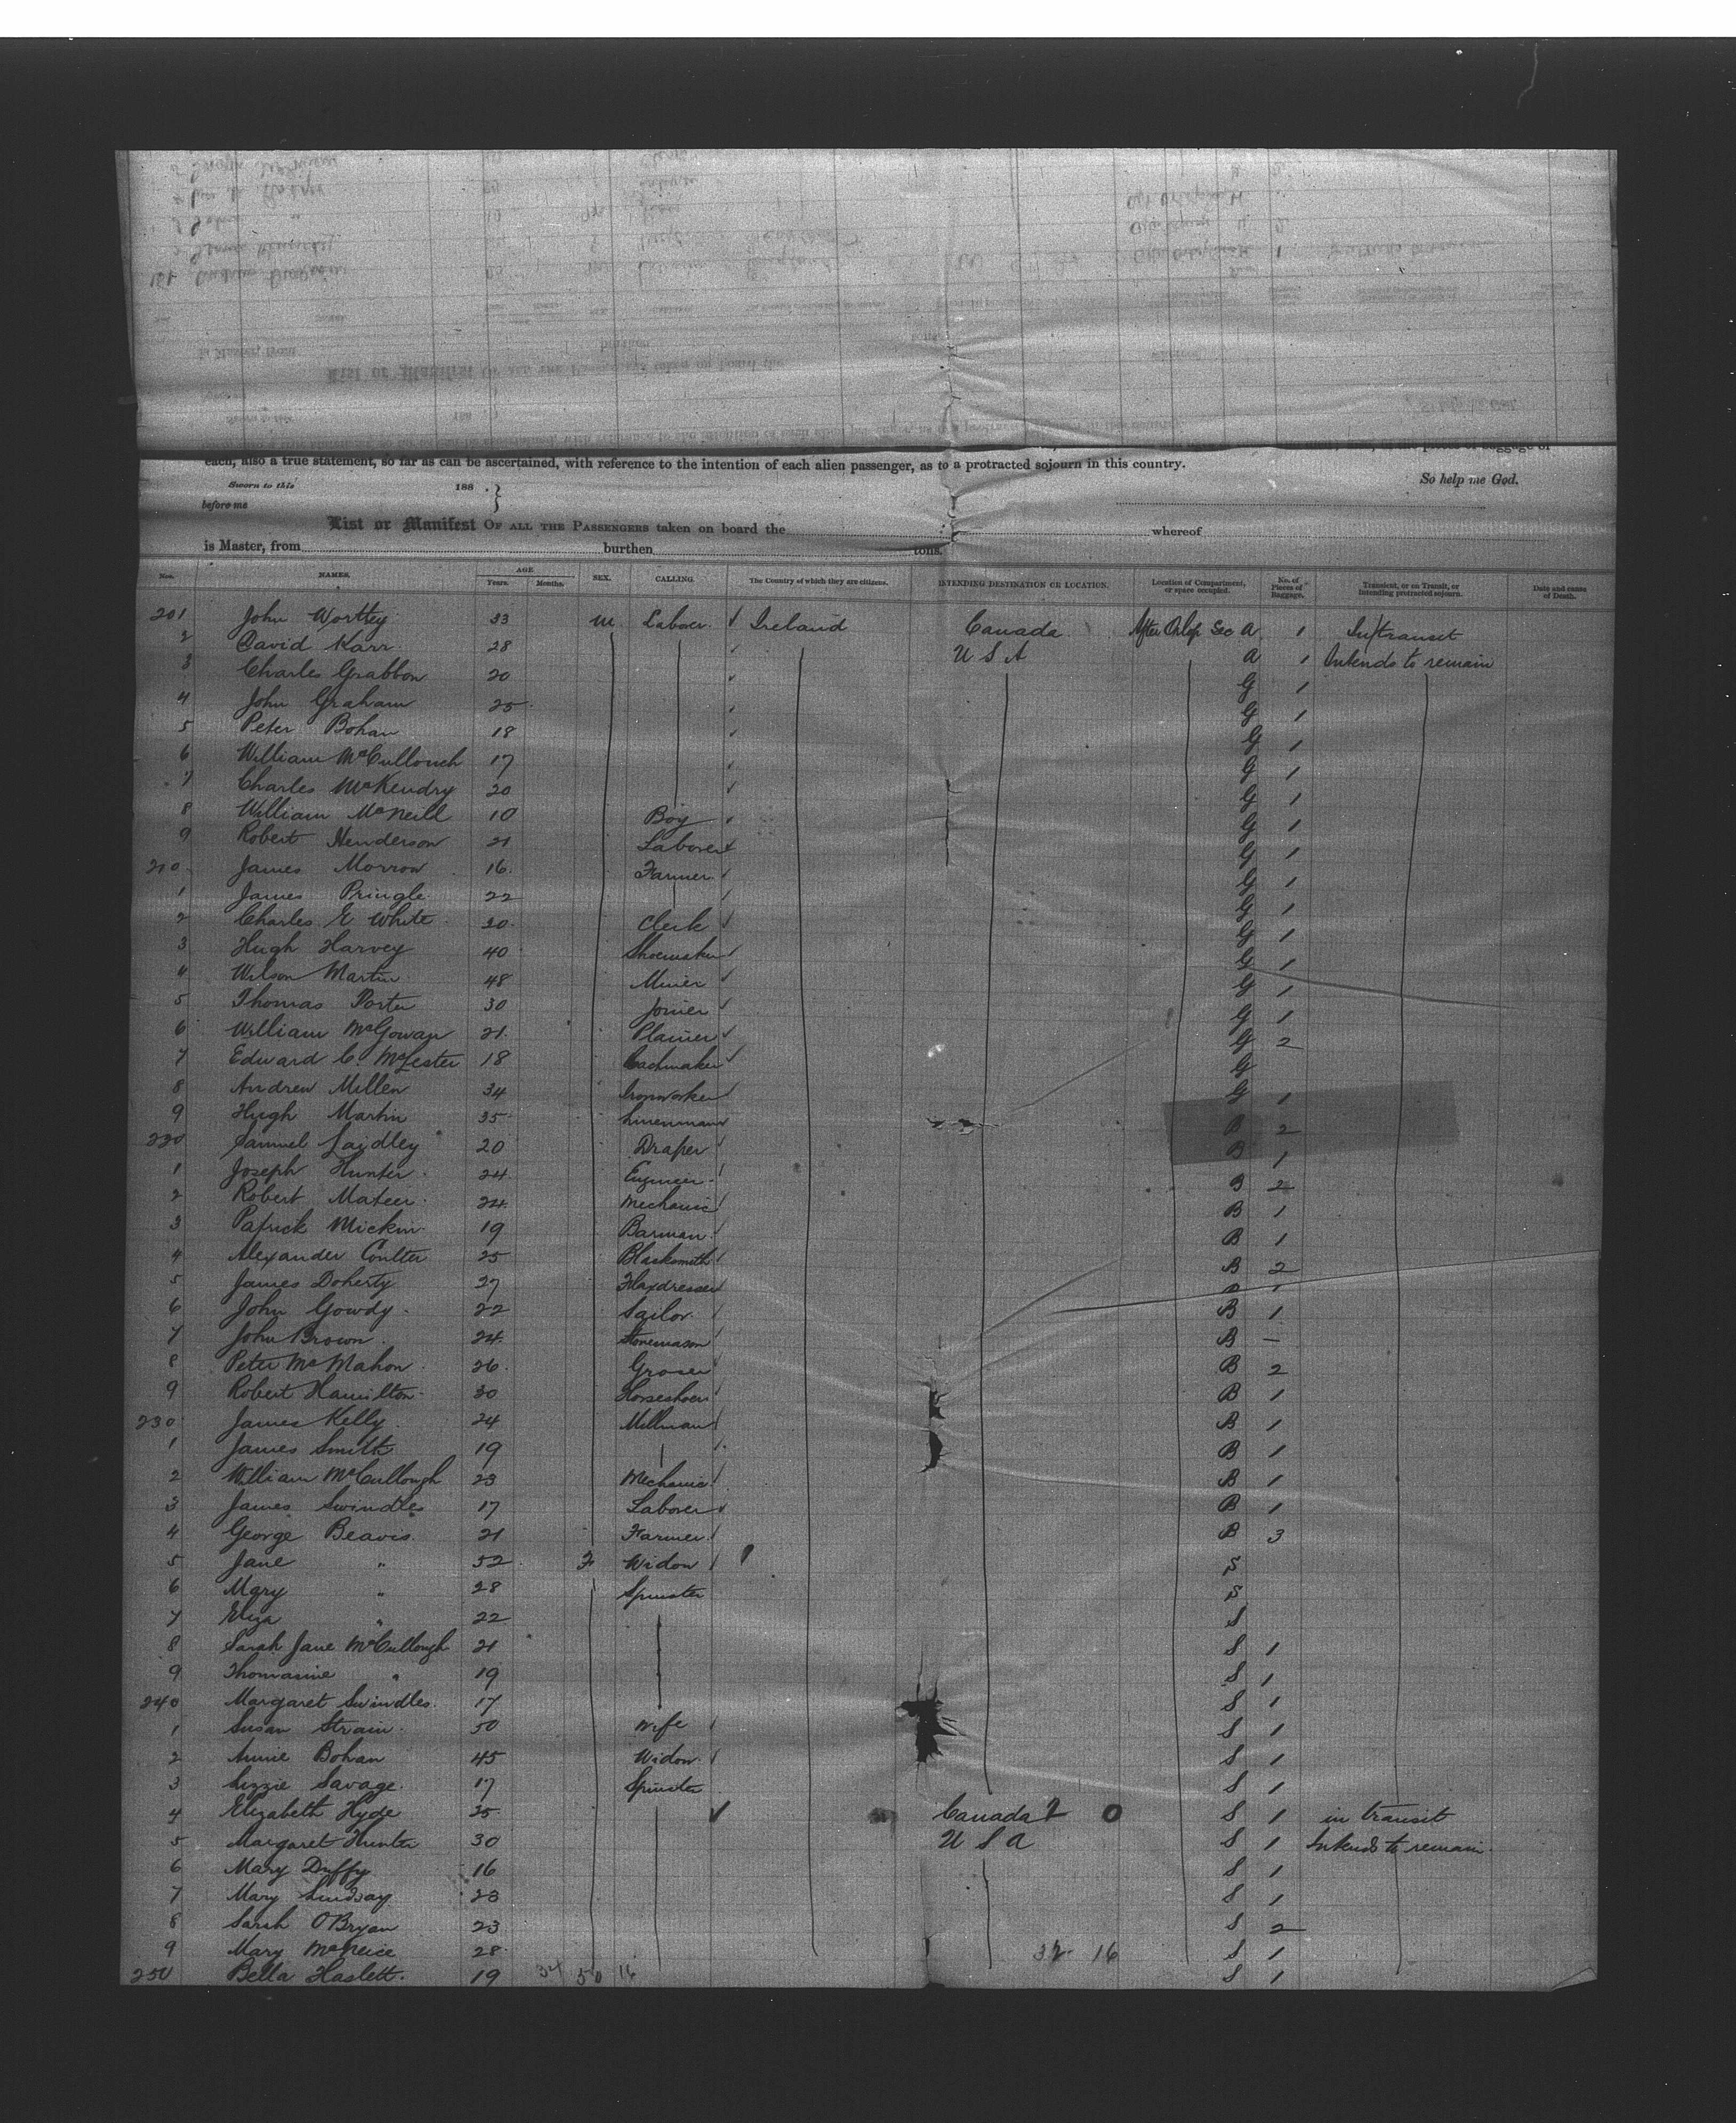 each, also a true statement, so far as can be ascertained, with reference to the intention of each alien passenger, as to a protracted sojourn in this country.
Sworn to this 188 . } So help me God.
before me
List or Manifest OF ALL THE PASSENGERS taken on board the whereof
is Master, from burthen tons.
Nos. NAMES. AGE Years. Months. SEX. CALLING. The Country of which they are citizens. INTENDING DESTINATION OR LOCATION. Location of Compartment, or space occupied. No. of Pieces of Baggage. Transient, or on Transit, or Intending protracted sojourn. Date and cause of Death.
201 John Worthy 33 M Laborer Ireland Canada After Orlop Sec A 1 In transit
2 David Karr 28 U S A A 1 Intends to remain
3 Charles Grabbon 20 G 1
4 John Graham 25 G 1
5 Peter Bohan 18 G 1
6 William McCullouch 17 G 1
7 Charles McKendry 20 G 1
8 William McNeill 10 Boy G 1
9 Robert Henderson 21 Laborer G 1
210 James Morrow 16 Farmer G 1
1 James Pringle 22 G 1
2 Charles E White 20 Clerk G 1
3 Hugh Harvey 40 Shoemaker G 1
4 Wilson Martin 48 Miner G 1
5 Thomas Porter 30 Joiner G 1
6 William McGowan 21 Plainer G 2
7 Edward C. McLester 18 Coachmaker G
8 Andrew Millen 34 Ironworker G 1
9 Hugh Martin 35 Linenman B 2
220 Samuel Laidley 20 Draper B 1
1 Joseph Hunter 24 Engineer B 2
2 Robert Mateer 24 Mechanic B 1
3 Patrick Mickin 19 Barman B 1
4 Alexander Coulter 25 Blacksmith B 2
5 James Doherty 27 Flaxdresser B 1
6 John Gowdy 22 Sailor B 1
7 John Brown 24 Stonemason B —
8 Peter McMahon 26 Grocer B 2
9 Robert Hamilton 30 Horseshoer B 1
230 James Kelly 24 Millman B 1
1 James Smith 19 B 1
2 William McCullough 23 Mechanic B 1
3 James Swindles 17 Laborer B 1
4 George Beavis 21 Farmer B 3
5 Jane " 52 F Widow S
6 Mary " 28 Spinster S
7 Eliza " 22 S
8 Sarah Jane McCullough 21 S 1
9 Thomasine " 19 S 1
240 Margaret Swindles 17 S 1
1 Susan Strain 50 Wife S 1
2 Annie Bohan 45 Widow S 1
3 Lizzie Savage 17 Spinster S 1
4 Elizabeth Hyde 25 Canada 2 0 S 1 in transit
5 Margaret Hunter 30 U S A S 1 Intends to remain
6 Mary Duffy 16 S 1
7 Mary Lindsay 23 S 1
8 Sarah OBryan 23 S 2
9 Mary McNeice 28 32 16 S 1
250 Bella Haslett 19 34 50 16 S 1